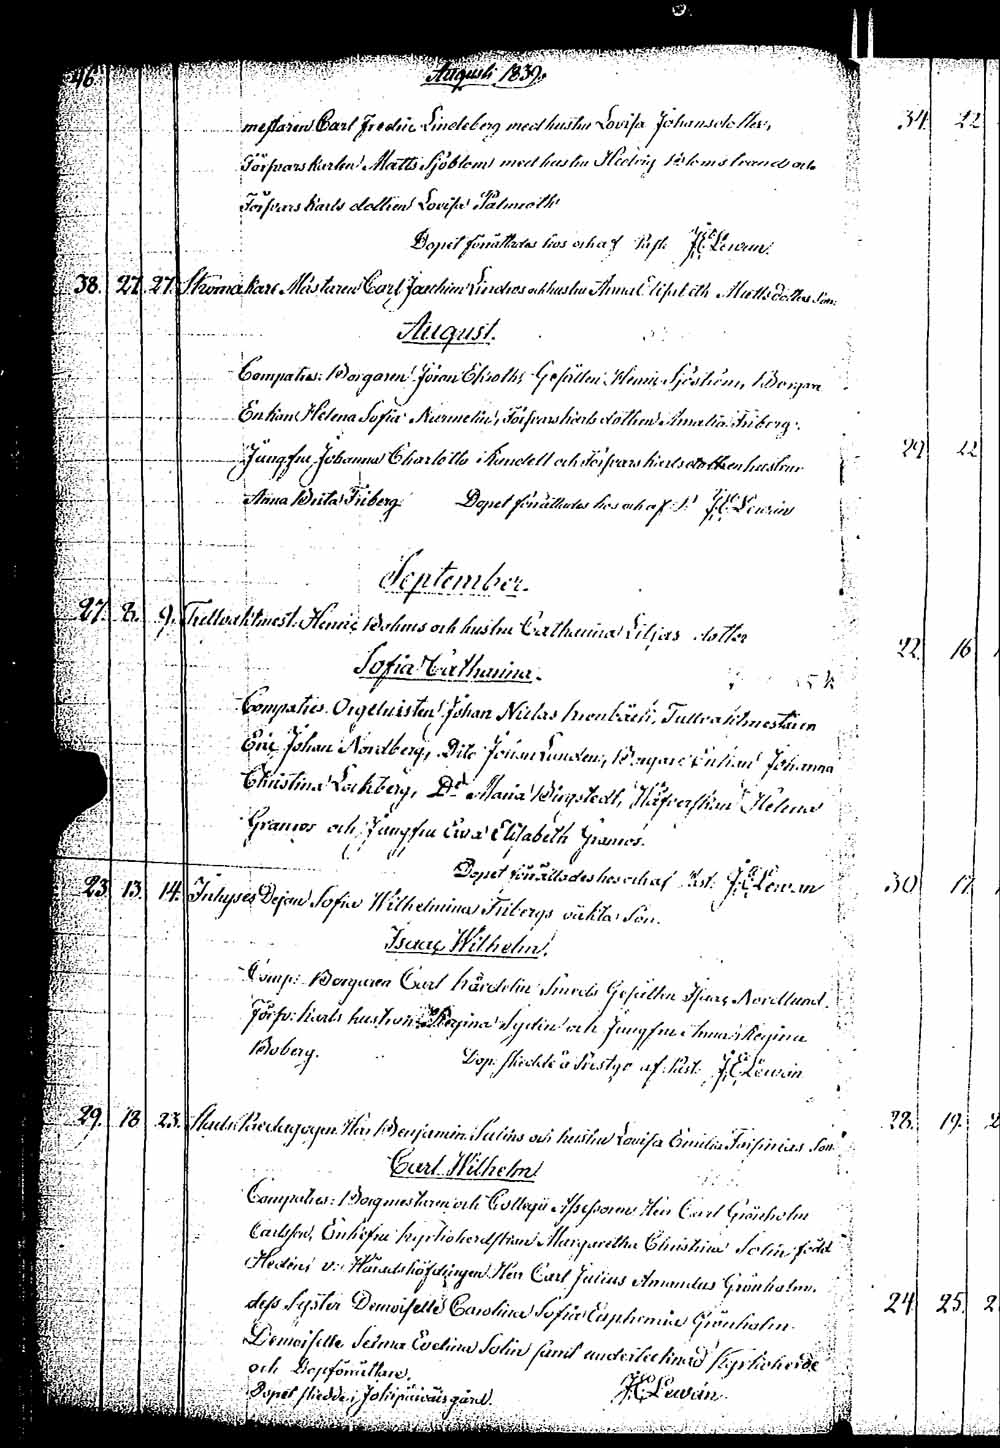 46.
Augusti 1839.
mestaren Carl Fredric Lindeberg med hustru Lovisa Johansdotter,
Försvarskarlen Matts Sjöblom med hustru Hedvig
Försvarskarls dottren Lovisa Palmroth
Dopet förrättades hos och af Past. J.E. Lewan.
38. 27. 27. Skomakare Mästaren Carl Joachim Lindros och hustru Anna Elisabeth Mattsdotters Son
August.
Compatres: Borgaren Jöran Ekroth, Gesällen Henric Sjöström, Borgare
Enkan Helena Sofia Nurmelin, Försvarskarls dottren Amalia Friberg.
Jungfru Johanna Charlotta Randell och Försvarskarls dottren hustru
Anna Brita Friberg. Dopet förrättades hos och af P. J.E. Lewan
September.
27. 8. 9. Tullvaktmest. Henric Bohms och hustru Catharina Liljas dotter
Sofia Catharina.
Compatres. Orgelnisten Johan Niclas Kronbäck, Tullvaktmestaren
Eric Johan Nordberg, Dito Jöran Lunden, Borgare Enkan Johanna
Christina Lochberg, Do Maria Birgstedt, Helena
Gramos och Jungfru Eva Elisabeth Gramos.
Dopet förrättades hos och af Past. J.E. Lewan
23 13. 14. Inhyses Dejan Sofia Wilhelmina Fribergs oäkta Son.
Isaac Wilhelm.
Comp: Borgaren Carl Hårdelin Smeds Gesällen Isaac Nordlund.
Försv: karls hustrun Regina Sydin och Jungfru Anna Regina
Boberg. Dop. skedde å af Past. J.E. Lewan
29. 18 23. Stads Paedagogen Herr Benjamin Salins och hustru Lovisa Emilia Son
Carl Wilhelm
Compatres: Borgmestaren och Collegii Assessoren Herr Carl Grönholm
Carlsson, Enkefru Kyrkoherdskan Margaretha Christina Solin född
Hedeni v: Häradshöfdingen Herr Carl Julius Amandus Grönholm,
dess Syster Demoiselle Carolina Sofia Euphemia Grönholm
Demoiselle Selma Evelina Solin samt undertecknad Kyrkoherde
och Dopförrättare.
Dopet skedde i gård. J.E. Lewan.
34. 22
29 22
22. 16
30 17
28. 19.
24 25.